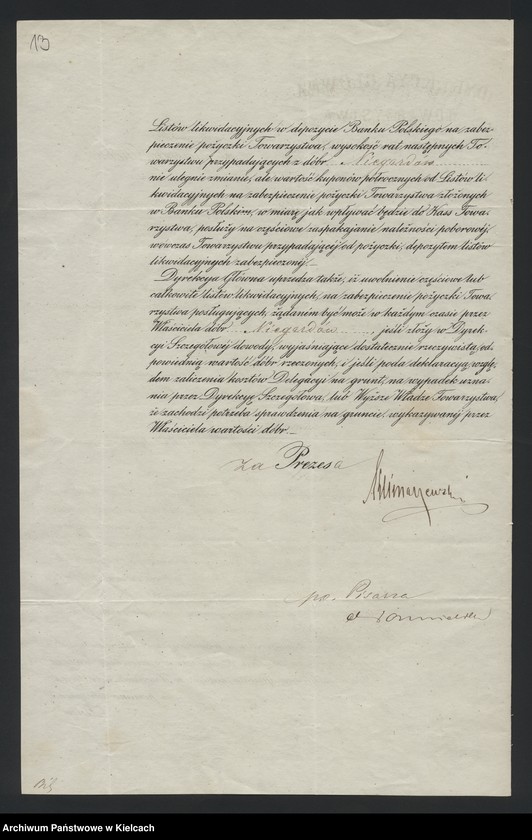 13
Listów likwidacyjnych w depozycie Banku Polskiego na zabez-
pieczenie pożyczki Towarzystwa, wysokość rat następnych To-
warzystwu przypadających z dóbr Niegardów
nie ulegnie zmianie, ale wartość kuponów półrocznych od Listów li-
kwidacyjnych na zabezpieczenie pożyczki Towarzystwa złożonych
w Banku Polskim, w miarę jak wpływać będzie do Kass Towa-
rzystwa, posłuży na częściowe zaspakajanie należności poborowej
wówczas Towarzystwu przypadającej od pożyczki, depozytem listów
likwidacyjnych zabezpieczonej.—
Dyrekcya Główna uprzedza także, iż uwolnienie częściowe lub
całkowite listów likwidacyjnych, na zabezpieczenie pożyczki Towa-
rzystwa posługujących, żądaném być może w każdym czasie przez
Właściciela dóbr Niegardów, jeśli złoży w Dyrek-
cyi Szczegółowej dowody, wyjaśniające dostatecznie rzeczywistą od-
powiednią wartość dóbr rzeczonych, i jeśli poda deklaracyą wzglę-
dem zaliczenia kosztów Delegacyi na grunt, na wypadek uzna-
nia przez Dyrekcyę Szczegółową, lub Wyższe Władze Towarzystwa,
że zachodzi potrzeba sprawdzenia na gruncie, wykazywanej przez
Właściciela wartości dóbr.—
za Prezesa
po. Pisarza
Archiwum Państwowe w Kielcach